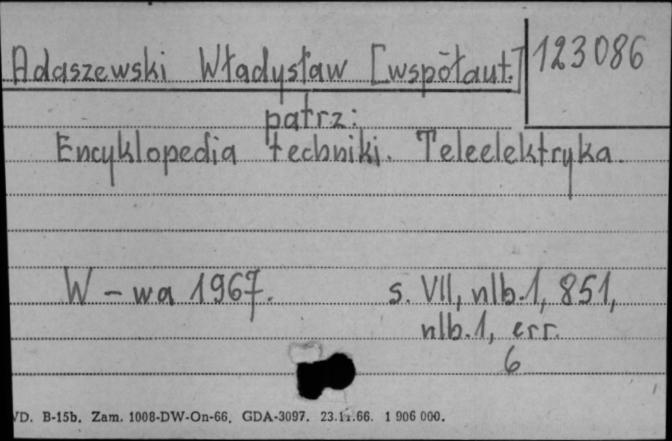 Adaszewski Władysław [współaut.] 123086
patrz:
Encyklopedia techniki. Teleelektryka.
W-wa 1967. s. VII, nlb.1, 851,
nlb.1, err.
6
VD. B-15b. Zam. 1008-DW-On-66. GDA-3097. 23.11.66. 1 906 000.